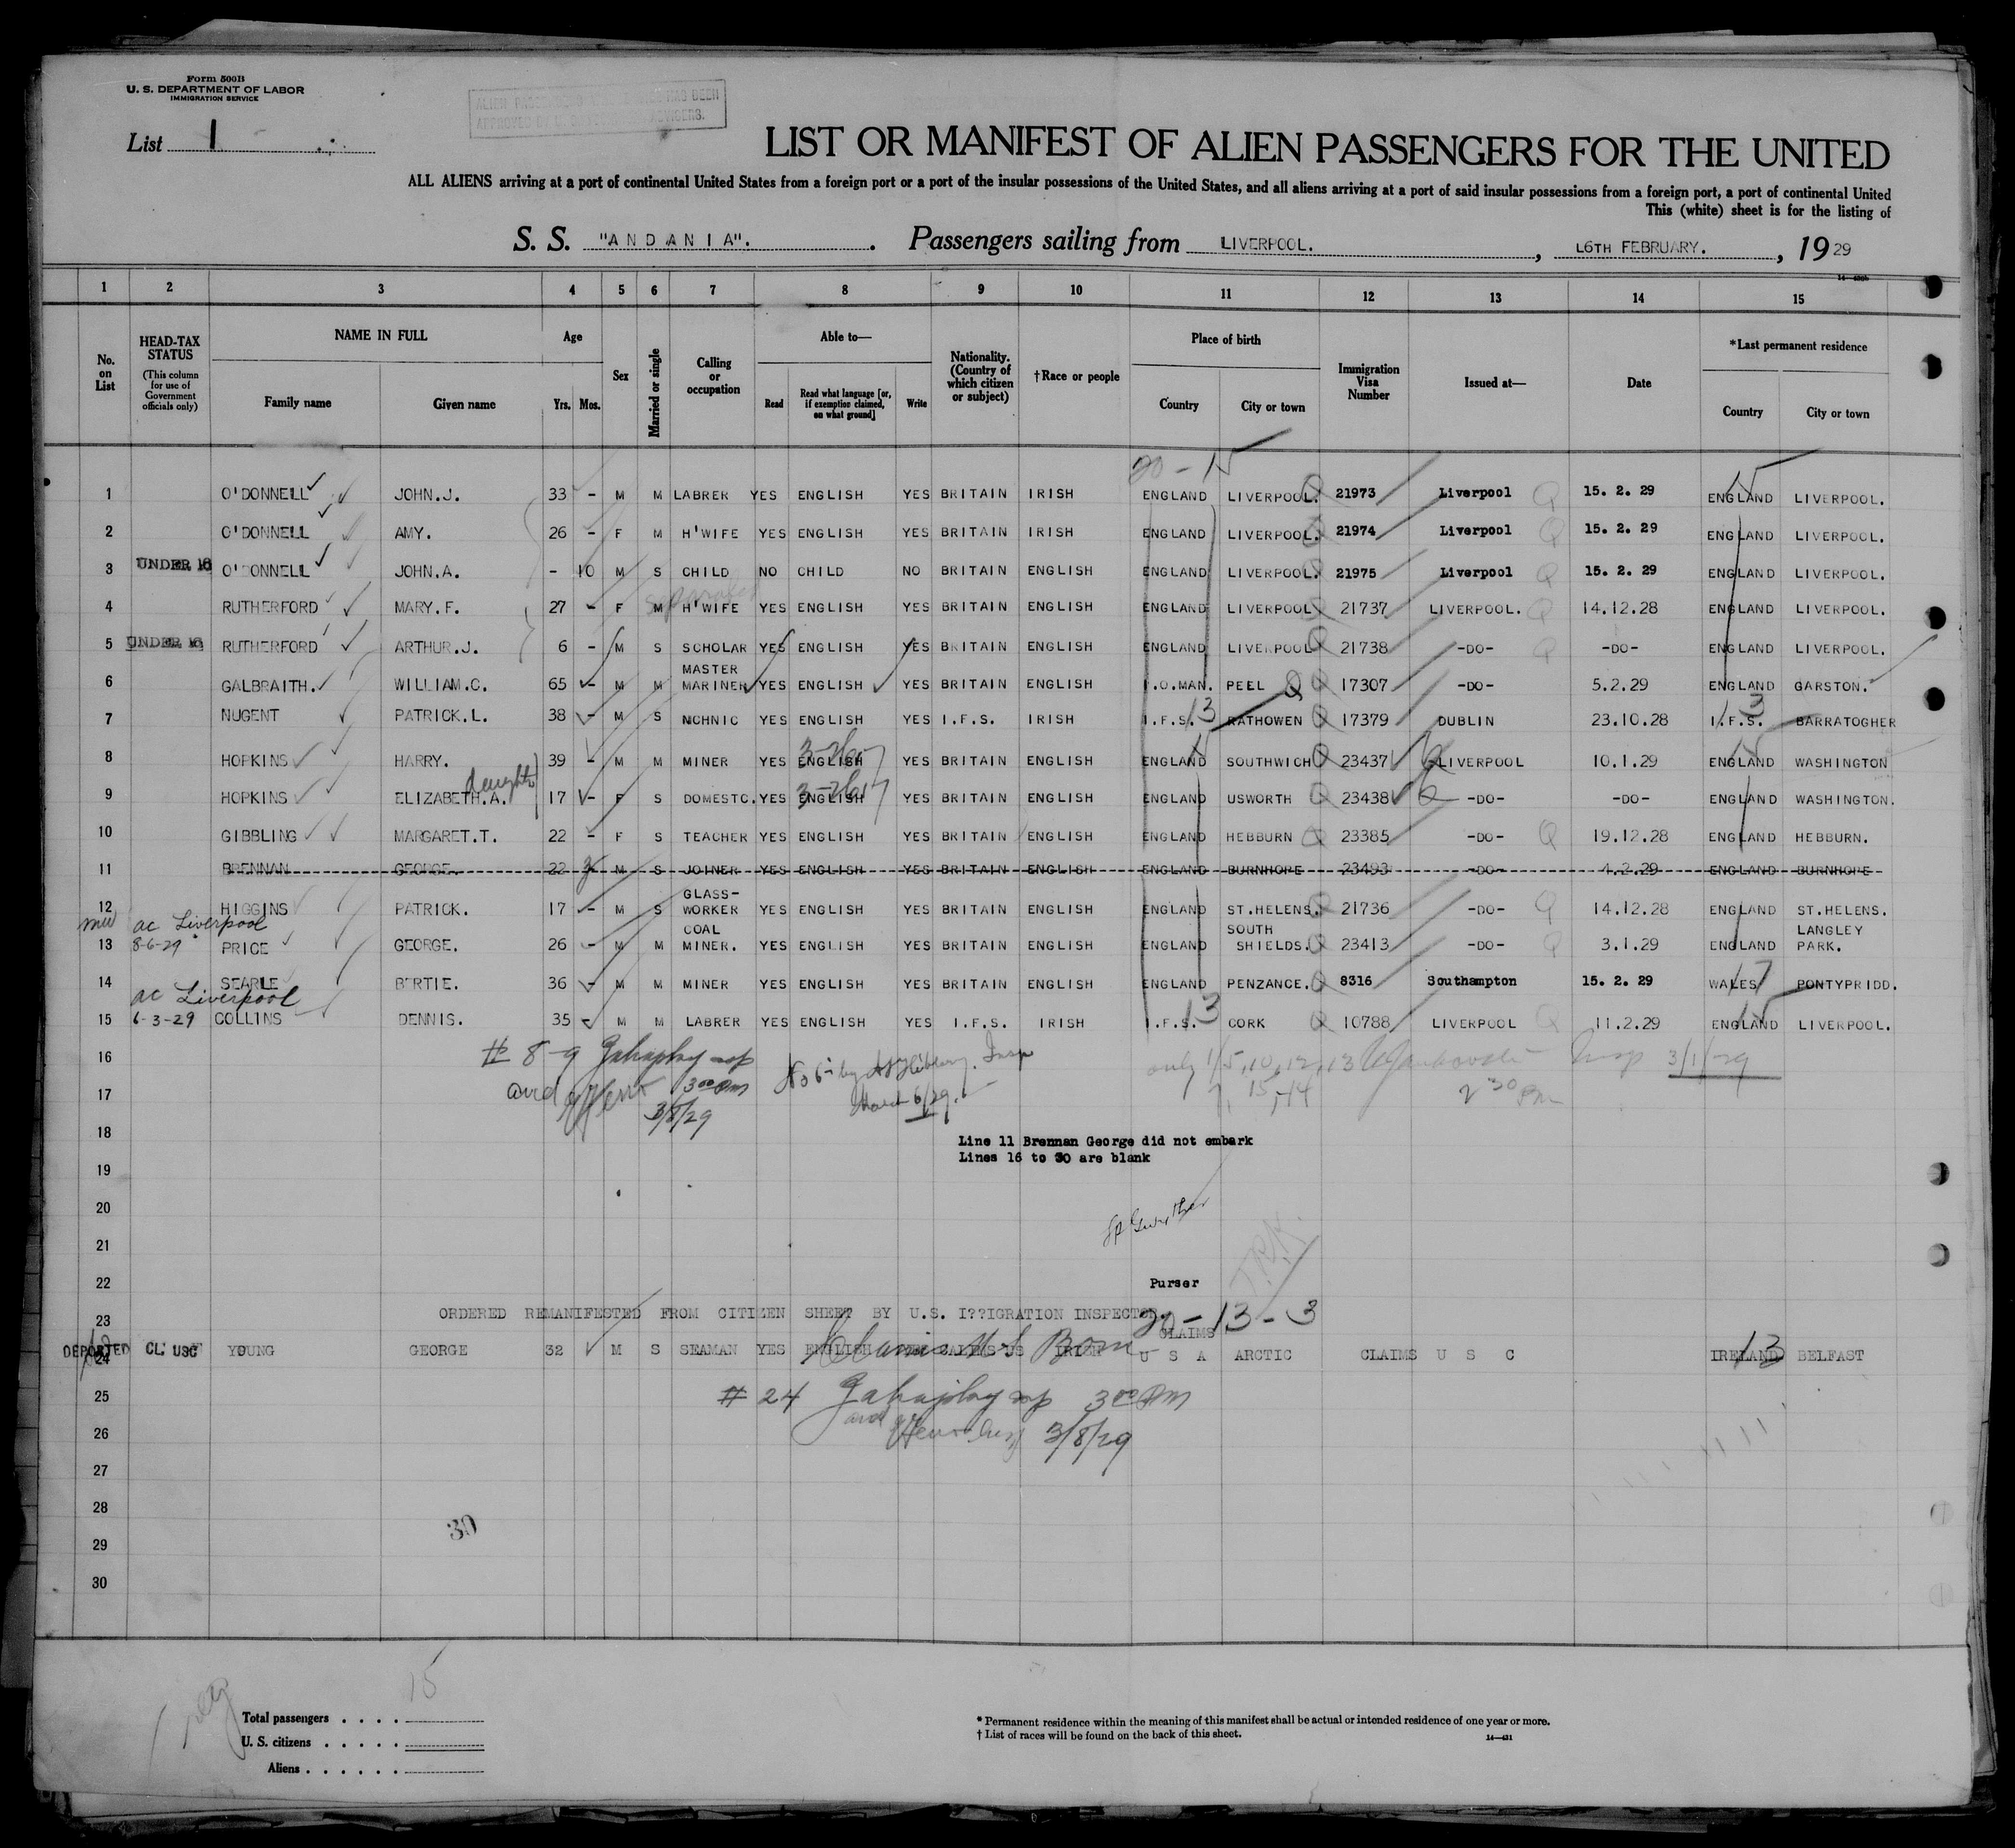 Form 500B
U. S. DEPARTMENT OF LABOR
IMMIGRATION SERVICE
List 1
LIST OR MANIFEST OF ALIEN PASSENGERS FOR THE UNITED
ALL ALIENS arriving at a port of continental United States from a foreign port or a port of the insular possessions of the United States, and all aliens arriving at a port of said insular possessions from a foreign port, a port of continental United
This (white) sheet is for the listing of
S. S. "ANDANIA". Passengers sailing from LIVERPOOL. , L6TH FEBRUARY. , 1929
1 2 3 4 5 6 7 8 9 10 11 12 13 14 15
No. on List
HEAD-TAX STATUS (This column for use of Government officials only)
NAME IN FULL
Family name Given name
Age
Yrs. Mos.
Sex
Married or single
Calling or occupation
Able to—
Read Read what language [or, if exemption claimed, on what ground] Write
Nationality. (Country of which citizen or subject)
†Race or people
Place of birth
Country City or town
Immigration Visa Number
Issued at—
Date
*Last permanent residence
Country City or town
20 - 15
1 O'DONNELL JOHN.J. 33 - M M LABRER YES ENGLISH YES BRITAIN IRISH ENGLAND LIVERPOOL. 21973 Liverpool 15. 2. 29 ENGLAND LIVERPOOL.
2 O'DONNELL AMY. 26 - F M H'WIFE YES ENGLISH YES BRITAIN IRISH ENGLAND LIVERPOOL. 21974 Liverpool 15. 2. 29 ENGLAND LIVERPOOL.
3 UNDER 16 O'DONNELL JOHN.A. - 10 M S CHILD NO CHILD NO BRITAIN ENGLISH ENGLAND LIVERPOOL. 21975 Liverpool 15. 2. 29 ENGLAND LIVERPOOL.
separated
4 RUTHERFORD MARY.F. 27 - F M H'WIFE YES ENGLISH YES BRITAIN ENGLISH ENGLAND LIVERPOOL 21737 LIVERPOOL. 14.12.28 ENGLAND LIVERPOOL.
5 UNDER 16 RUTHERFORD ARTHUR.J. 6 - M S SCHOLAR YES ENGLISH YES BRITAIN ENGLISH ENGLAND LIVERPOOL 21738 -DO- -DO- ENGLAND LIVERPOOL.
6 GALBRAITH. WILLIAM.C. 65 - M M MASTER MARINER YES ENGLISH YES BRITAIN ENGLISH I.O.MAN. PEEL 17307 -DO- 5.2.29 ENGLAND GARSTON.
7 NUGENT PATRICK.L. 38 - M S NCHNIC YES ENGLISH YES I.F.S. IRISH I.F.S. 13 RATHOWEN 17379 DUBLIN 23.10.28 I.F.S. 13 BARRATOGHER
8 HOPKINS HARRY. 39 - M M MINER YES ENGLISH YES BRITAIN ENGLISH ENGLAND SOUTHWICH 23437 LIVERPOOL 10.1.29 ENGLAND WASHINGTON
daughter
9 HOPKINS ELIZABETH.A. 17 - F S DOMESTC. YES ENGLISH YES BRITAIN ENGLISH ENGLAND USWORTH 23438 -DO- -DO- ENGLAND WASHINGTON.
10 GIBBLING MARGARET.T. 22 - F S TEACHER YES ENGLISH YES BRITAIN ENGLISH ENGLAND HEBBURN 23385 -DO- 19.12.28 ENGLAND HEBBURN.
11 BRENNAN GEORGE. 22 M S JOINER YES ENGLISH YES BRITAIN ENGLISH ENGLAND BURNHOPE 23493 -DO- 4.2.29 ENGLAND BURNHOPE
12 HIGGINS PATRICK. 17 - M S GLASS-WORKER YES ENGLISH YES BRITAIN ENGLISH ENGLAND ST.HELENS. 21736 -DO- 14.12.28 ENGLAND ST.HELENS.
ac Liverpool
13 8-6-29 PRICE GEORGE. 26 - M M COAL MINER. YES ENGLISH YES BRITAIN ENGLISH ENGLAND SOUTH SHIELDS. 23413 -DO- 3.1.29 ENGLAND LANGLEY PARK.
14 SEARLE BERTIE. 36 - M M MINER YES ENGLISH YES BRITAIN ENGLISH ENGLAND PENZANCE. 8316 Southampton 15. 2. 29 WALES 17 PONTYPRIDD.
ac Liverpool
15 6-3-29 COLLINS DENNIS. 35 - M M LABRER YES ENGLISH YES I.F.S. IRISH I.F.S. 13 CORK 10788 LIVERPOOL 11.2.29 ENGLAND 15 LIVERPOOL.
16 # 8-9
3 00 Pm
17 3/8/29 March 6/29. only 1/5, 10, 12, 13 15, 14 Insp 3/1/29 2 30 Pm
18 Line 11 Brennan George did not embark
Lines 16 to 30 are blank
19
20
21
22 Purser
23 ORDERED REMANIFESTED FROM CITIZEN SHEET BY U.S. I??IGRATION INSPECTOR. 20-13-3
CLAIMS
DEPORTED 24 CL' USC YOUNG GEORGE 32 M S SEAMAN YES ENGLISH Claims U S Born IRISH U S A ARCTIC CLAIMS U S C IRELAND 13 BELFAST
25 # 24 3 00 Pm
26 3/8/29
27
28 30
29
30
15
Total passengers . . . .
U. S. citizens . . . . .
Aliens . . . . . .
* Permanent residence within the meaning of this manifest shall be actual or intended residence of one year or more.
† List of races will be found on the back of this sheet.
14—431